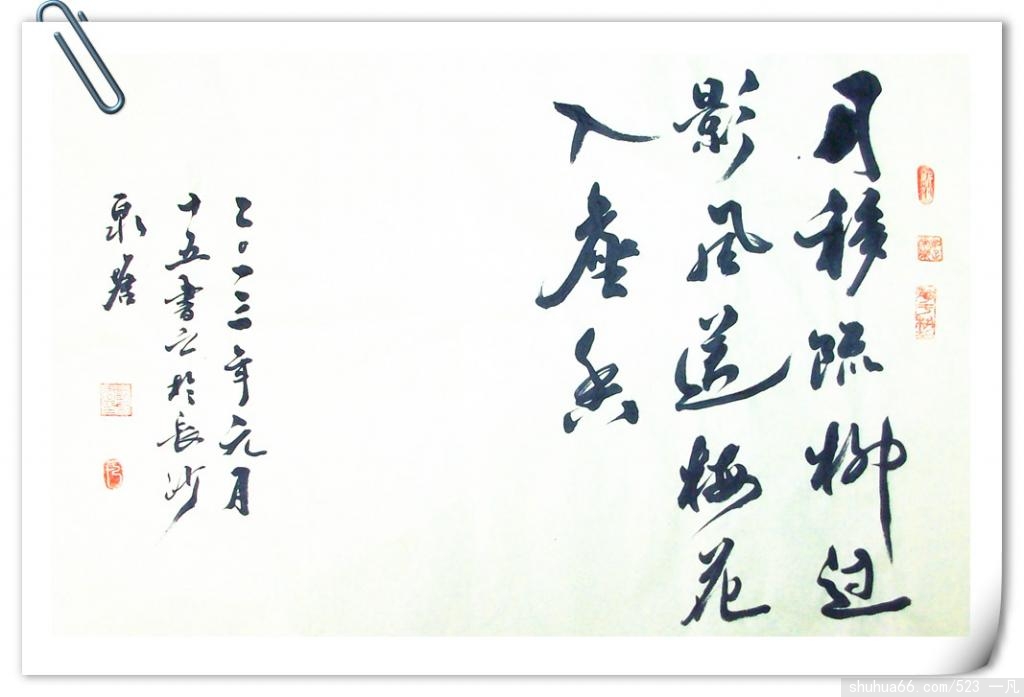 月移疏柳过
影风送梅花
入座香
二〇一三年元月
十五書之於长沙
泉
shuhua66.com/523 一凡